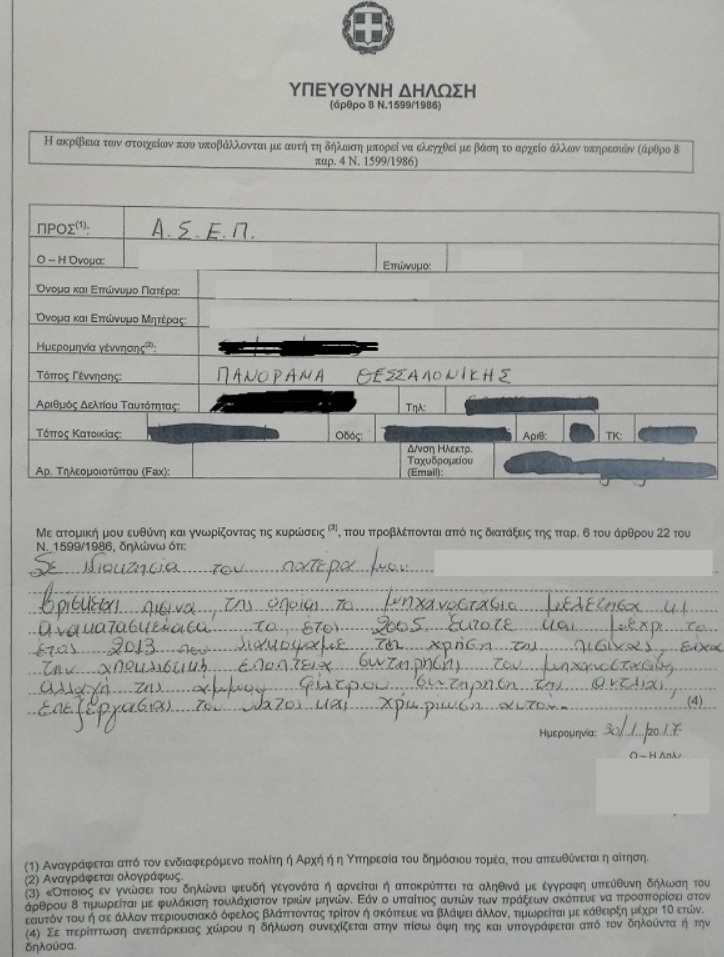 ΥΠΕΥΘΥΝΗ ΔΗΛΩΣΗ
(άρθρο 8 Ν.1599/1986)
Η ακρίβεια των στοιχείων που υποβάλλονται με αυτή τη δήλωση μπορεί να ελεγχθεί με βάση το αρχείο άλλων υπηρεσιών (άρθρο 8
παρ. 4 Ν. 1599/1986)
ΠΡΟΣ(1): Α.Σ.Ε.Π.
Ο – Η Όνομα: Επώνυμο:
Όνομα και Επώνυμο Πατέρα:
Όνομα και Επώνυμο Μητέρας:
Ημερομηνία γέννησης(2):
Τόπος Γέννησης: ΠΑΝΟΡΑΜΑ ΘΕΣΣΑΛΟΝΙΚΗΣ
Αριθμός Δελτίου Ταυτότητας: Τηλ:
Τόπος Κατοικίας: Οδός: Αριθ: ΤΚ:
Αρ. Τηλεομοιοτύπου (Fax): Δ/νση Ηλεκτρ.
Ταχυδρομείου
(Email):
Με ατομική μου ευθύνη και γνωρίζοντας τις κυρώσεις (3), που προβλέπονται από τις διατάξεις της παρ. 6 του άρθρου 22 του
Ν. 1599/1986, δηλώνω ότι:
Σε ιδιοκτησία του πατέρα μου
βρίσκεται πισίνα, της οποίας το μηχανοστάσιο μελέτησα κι
ανακατασκεύασα το έτος 2005. Έκτοτε και μέχρι το
έτος 2013 που διακόψαμε την χρήση της πισίνας, είχα
την αποκλειστική εποπτεία συντήρησης του μηχανοστασίου,
αλλαγή της άμμου φίλτρου, συντήρηση της αντλίας,
επεξεργασίας του νερού και χλωρίωση αυτού. (4)
Ημερομηνία: 30/1/2017
Ο – Η Δηλ.
(1) Αναγράφεται από τον ενδιαφερόμενο πολίτη ή Αρχή ή η Υπηρεσία του δημόσιου τομέα, που απευθύνεται η αίτηση.
(2) Αναγράφεται ολογράφως.
(3) «Όποιος εν γνώσει του δηλώνει ψευδή γεγονότα ή αρνείται ή αποκρύπτει τα αληθινά με έγγραφη υπεύθυνη δήλωση του
άρθρου 8 τιμωρείται με φυλάκιση τουλάχιστον τριών μηνών. Εάν ο υπαίτιος αυτών των πράξεων σκόπευε να προσπορίσει στον
εαυτόν του ή σε άλλον περιουσιακό όφελος βλάπτοντας τρίτον ή σκόπευε να βλάψει άλλον, τιμωρείται με κάθειρξη μέχρι 10 ετών.
(4) Σε περίπτωση ανεπάρκειας χώρου η δήλωση συνεχίζεται στην πίσω όψη της και υπογράφεται από τον δηλούντα ή την
δηλούσα.